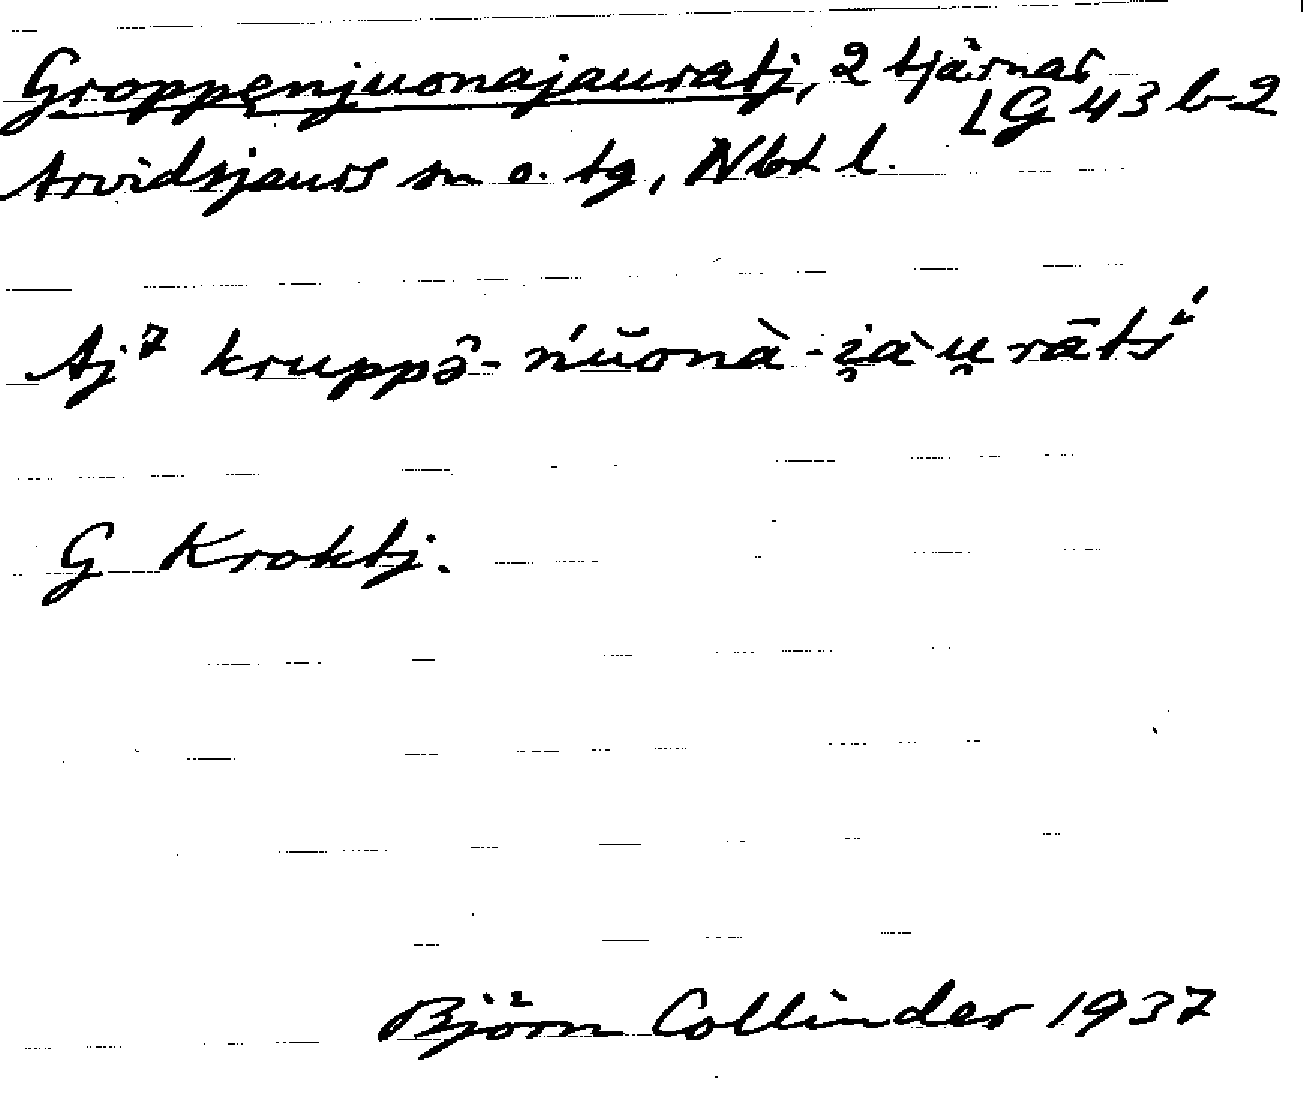 Groppenjuonajauratj, 2 tjärnar
LG 43 b-2
Arvidsjaurs sn o. tg, Nbt l.
Aj⁷ kruppə̂- ńŭonà-i̯àu̯rātś
G Kroktj.
Björn Collinder 1937